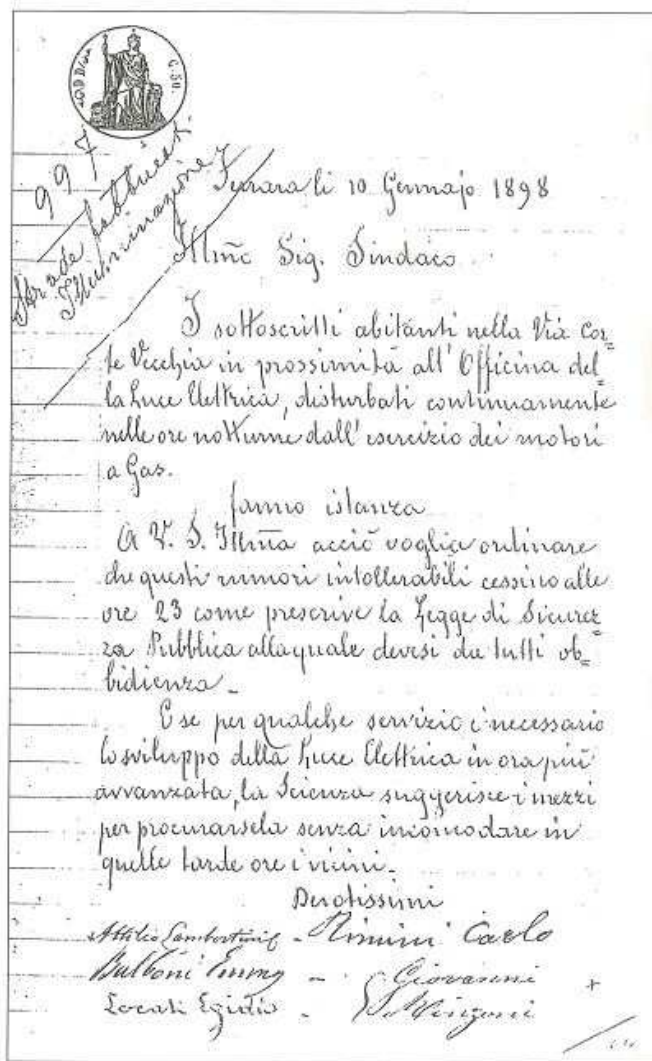 C. 50.
997
Strade fabbricati
Illuminazione
Ferrara li 10 Gennajo 1898
Illmo Sig. Sindaco
I sottoscritti abitanti nella Via Cor=
te Vecchia in prossimità all' Officina del=
la Luce Elettrica, disturbati continuamente
nelle ore notturne dall' esercizio dei motori
a Gas.
fanno istanza
A V. S. Illma acciò voglia ordinare
che questi rumori intollerabili cessino alle
ore 23 come prescrive la Legge di Sicurez=
za Pubblica alla quale devesi da tutti ob=
bidienza_
E se per qualche servizio è necessario
lo sviluppo della Luce Elettrica in ora più
avvanzata, la Scienza suggerisce i mezzi
per procurarsela senza incomodare in
quelle tarde ore i vicini_
Devotissimi
Attilio _ Rimini Carlo
Balboni _ Giovanni +
Locati Egidio _ Minzoni